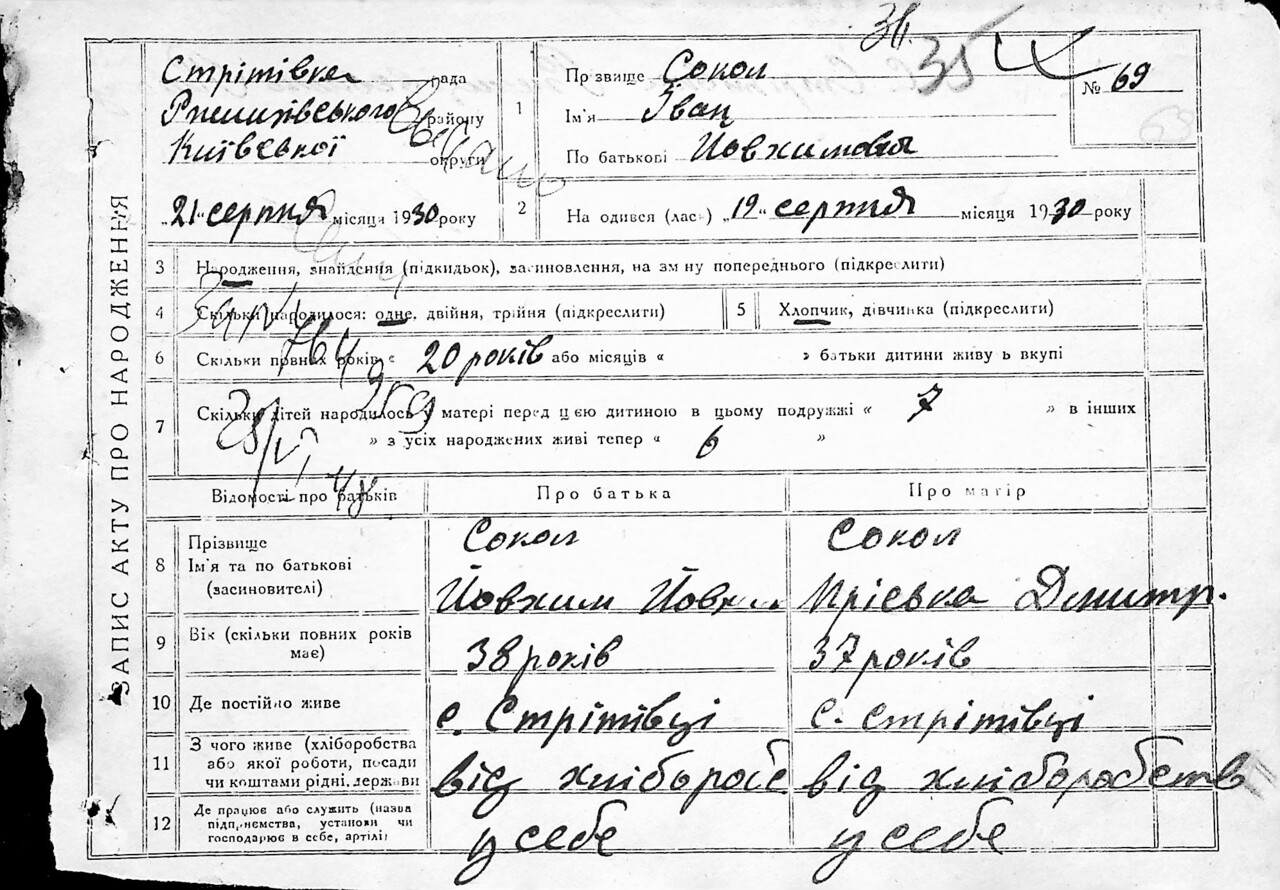 ЗАПИС АКТУ ПРО НАРОДЖЕННЯ
34.
35
№ 69
Стрітівка рада
Ржищівського району
Київської округи
"21" серпня місяця 1930 року
1 Прізвище Сокол
Ім'я Іван
По батькові Йовхимович
2 На одився (лась) "19" серпня місяця 1930 року
3 Народження, знайдення (підкидьок), засиновлення, на зм ну попереднього (підкреслити)
4 Скільки народилося: одне, двійня, трійня (підкреслити)
5 Хлопчик, дівчинка (підкреслити)
6 Скільки повних років « 20 років або місяців « » батьки дитини живу ь вкупі
7 Скільки дітей народилось у матері перед цією дитиною в цьому подружжі « 7 » в інших
» з усіх народжених живі тепер « 6 »
Відомості про батьків Про батька Про матір
8 Прізвище Сокол Сокол
Ім'я та по батькові
(засиновителі) Йовхим Йовхим Пріська Дмитр.
9 Вік (скільки повних років має) 38 років 37 років
10 Де постійно живе с. Стрітівці с. Стрітівці
11 З чого живе (хліборобства
або якої роботи, посади
чи коштами рідні, держави від хлібороб від хліборобств
12 Де працює або служить (назва
підприємства, установи чи
господарює в себе, артілі) у себе у себе